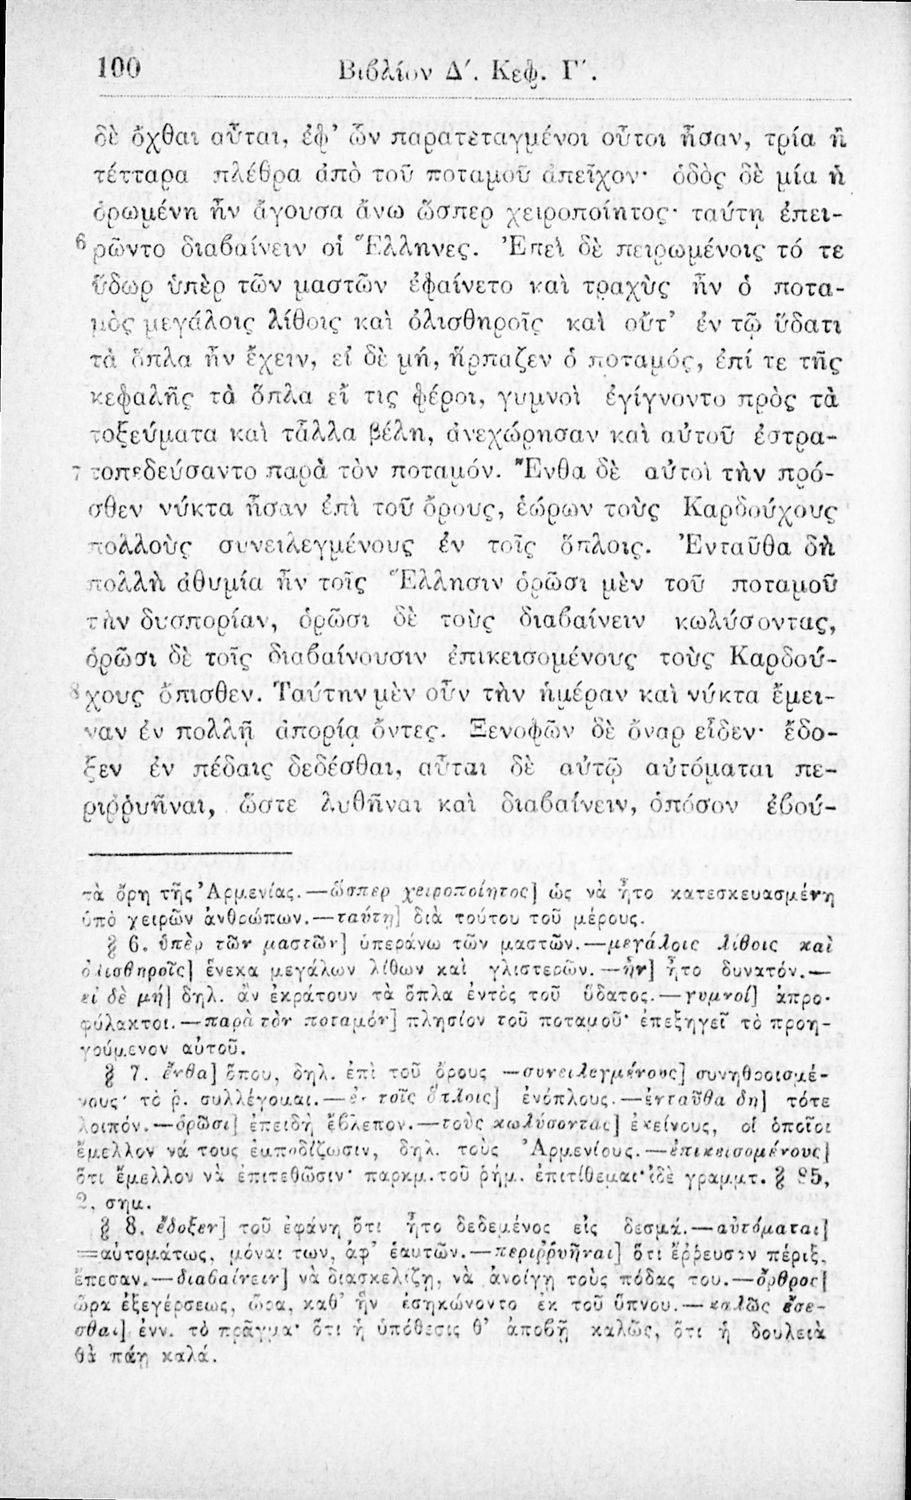 100 Βιβλίον Δ΄. Κεφ. Γ΄.
δὲ ὄχθαι αὗται, ἐφ’ ὧν παρατεταγμένοι οὗτοι ἦσαν, τρία ἢ
τέτταρα πλέθρα ἀπὸ τοῦ ποταμοῦ ἀπεῖχον· ὁδὸς δὲ μία ἡ
ὁρωμένη ἦν ἄγουσα ἄνω ὥσπερ χειροποίητος· ταύτῃ ἐπει-
6 ρῶντο διαβαίνειν οἱ Ἕλληνες. Ἐπεὶ δὲ πειρωμένοις τό τε
ὕδωρ ὑπὲρ τῶν μαστῶν ἐφαίνετο καὶ τραχὺς ἦν ὁ ποτα-
μὸς μεγάλοις λίθοις καὶ ὀλισθηροῖς καὶ οὔτ’ ἐν τῷ ὕδατι
τὰ ὅπλα ἦν ἔχειν, εἰ δὲ μή, ἥρπαζεν ὁ ποταμός, ἐπί τε τῆς
κεφαλῆς τὰ ὅπλα εἴ τις φέροι, γυμνοὶ ἐγίγνοντο πρὸς τὰ
τοξεύματα καὶ τἆλλα βέλη, ἀνεχώρησαν καὶ αὐτοῦ ἐστρα-
7 τοπεδεύσαντο παρὰ τὸν ποταμόν. Ἔνθα δὲ αὐτοὶ τὴν πρό-
σθεν νύκτα ἦσαν ἐπὶ τοῦ ὄρους, ἑώρων τοὺς Καρδούχους
πολλοὺς συνειλεγμένους ἐν τοῖς ὅπλοις. Ἐνταῦθα δὴ
πολλὴ ἀθυμία ἦν τοῖς Ἕλλησιν ὁρῶσι μὲν τοῦ ποταμοῦ
τὴν δυσπορίαν, ὁρῶσι δὲ τοὺς διαβαίνειν κωλύσοντας,
ὁρῶσι δὲ τοῖς διαβαίνουσιν ἐπικεισομένους τοὺς Καρδού-
8 χους ὄπισθεν. Ταύτην μὲν οὖν τὴν ἡμέραν καὶ νύκτα ἔμει-
ναν ἐν πολλῇ ἀπορίᾳ ὄντες. Ξενοφῶν δὲ ὄναρ εἶδεν· ἔδο-
ξεν ἐν πέδαις δεδέσθαι, αὗται δὲ αὐτῷ αὐτόμαται πε-
ριῤῥυῆναι, ὥστε λυθῆναι καὶ διαβαίνειν, ὁπόσον ἐβού-
τὰ ὄρη τῆς Ἀρμενίας.—ὥσπερ χειροποίητος] ὡς νὰ ἦτο κατεσκευασμένη
ὑπὸ χειρῶν ἀνθρώπων.—ταύτῃ] διὰ τούτου τοῦ μέρους.
§ 6. ὑπὲρ τῶν μαστῶν] ὑπεράνω τῶν μαστῶν.—μεγάλοις λίθοις καὶ
ὀλισθηροῖς] ἕνεκα μεγάλων λίθων καὶ γλιστερῶν.—ἦν] ἦτο δυνατόν.—
εἰ δὲ μή] δηλ. ἂν ἐκράτουν τὰ ὅπλα ἐντὸς τοῦ ὕδατος.—γυμνοί] ἀπρο-
φύλακτοι.—παρὰ τὸν ποταμόν] πλησίον τοῦ ποταμοῦ· ἐπεξηγεῖ τὸ προη-
γούμενον αὐτοῦ.
§ 7. ἔνθα] ὅπου, δηλ. ἐπὶ τοῦ ὄρους—συνειλεγμένους] συνηθροισμέ-
νους· τὸ ῥ. συλλέγομαι.—ἐν τοῖς ὅπλοις] ἐνόπλους.—ἐνταῦθα δὴ] τότε
λοιπόν.—ὁρῶσι] ἐπειδὴ ἔβλεπον.—τοὺς κωλύσοντας] ἐκείνους, οἱ ὁποῖοι
ἔμελλον νά τους ἐμποδίζωσιν, δηλ. τοὺς Ἀρμενίους.—ἐπικεισομένους]
ὅτι ἔμελλον νὰ ἐπιτεθῶσιν· παρκμ. τοῦ ῥήμ. ἐπιτίθεμαι· ἰδὲ γραμμτ. § 85,
2. σημ.
§ 8. ἔδοξεν] τοῦ ἐφάνη ὅτι ἦτο δεδεμένος εἰς δεσμά.—αὐτόμαται]
=αὐτομάτως, μόναι των, ἀφ’ ἑαυτῶν.—περιῤῥυῆναι] ὅτι ἔῤῥευσαν πέριξ,
ἔπεσαν.—διαβαίνειν] νὰ διασκελίζῃ, νὰ ἀνοίγῃ τοὺς πόδας του.—ὄρθρος]
ὥρα ἐξεγέρσεως, ὥρα, καθ’ ἣν ἐσηκώνοντο ἐκ τοῦ ὕπνου.—καλῶς ἔσε-
σθαι] ἐνν. τὸ πρᾶγμα· ὅτι ἡ ὑπόθεσις θ’ ἀποβῇ καλῶς, ὅτι ἡ δουλειὰ
θὰ πάῃ καλά.